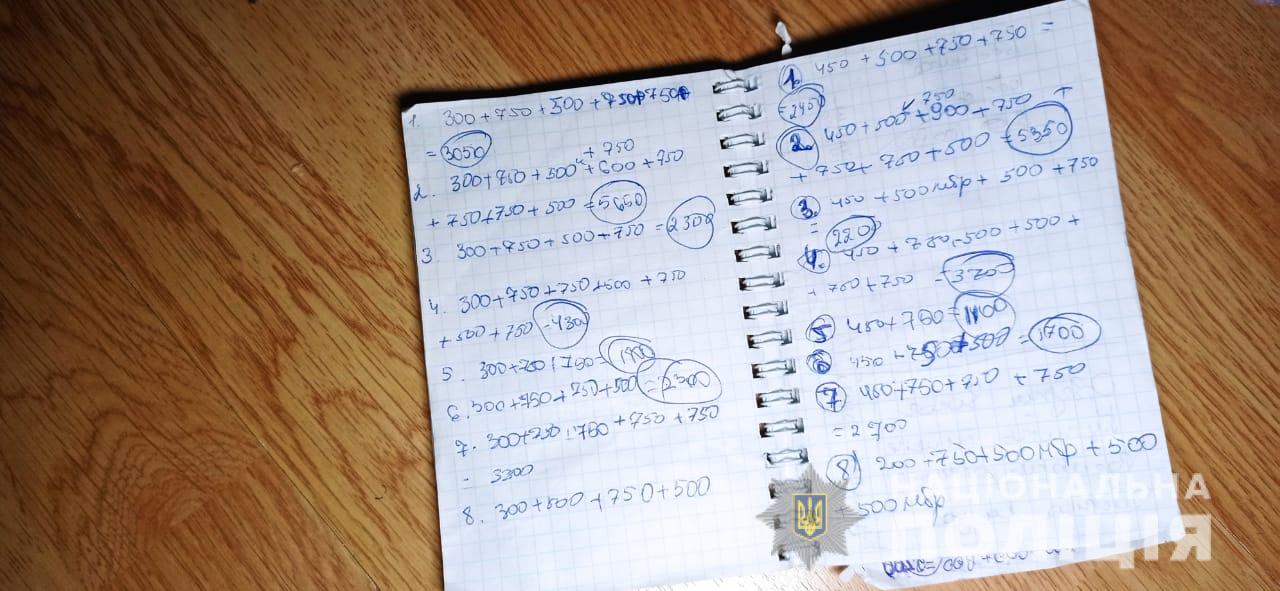 1. 300 + 750 + 500 + 750 + 750
= 3050
+ 750
2. 300 + 750 + 500 + 600 + 750
+ 750 + 750 + 500 = 5650
3 300 + 750 + 500 + 750 = 2300
4. 300 + 750 + 750 + 500 + 750
+ 500 + 750 = 4300
5. 300 + 750 + 750 =
6. 300 + 750 + 750 + 500 = 2300
7. 300 + 750 + 750 + 750 + 750
- 3300
8. 300 + 500 + 750 + 500
1. 450 + 500 + 750 + 750 =
= 2450
750
2. 450 + 500 + 900 + 750 +
+ 750 + 750 + 500 = 5350
3. 450 + 500 + 500 + 750
= 2200
4. 450 + 750 + 500 + 500 +
+ 750 + 750 = 3700
5 450 + 750 =
6 450 + 750 + 500 = 1700
7 450 + 750 + 750 + 750
= 2700
8) 200 + 750 + 500 + 500
+ 500
НАЦІОНАЛЬНА
ПОЛІЦІЯ